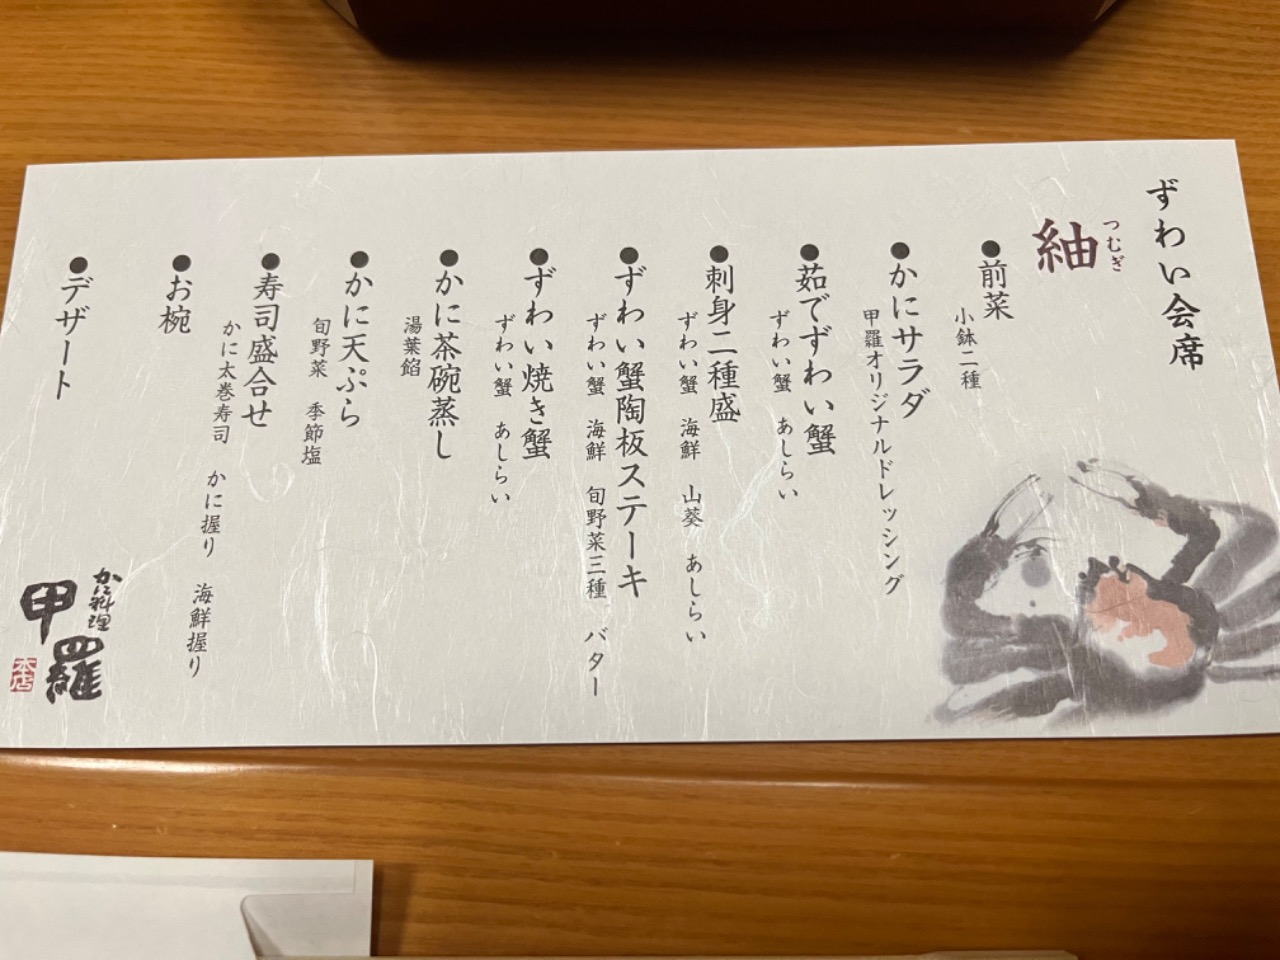 ずわい会席
つむぎ
紬
●前菜
小鉢二種
●かにサラダ
甲羅オリジナルドレッシング
●茹でずわい蟹
ずわい蟹　あしらい
●刺身二種盛
ずわい蟹　海鮮　山葵　あしらい
●ずわい蟹陶板ステーキ
ずわい蟹　海鮮　旬野菜三種　バター
●ずわい焼き蟹
ずわい蟹　あしらい
●かに茶碗蒸し
湯葉餡
●かに天ぷら
旬野菜　季節塩
●寿司盛合せ
かに太巻寿司　かに握り　海鮮握り
●お椀
●デザート
かに料理
甲羅
本店